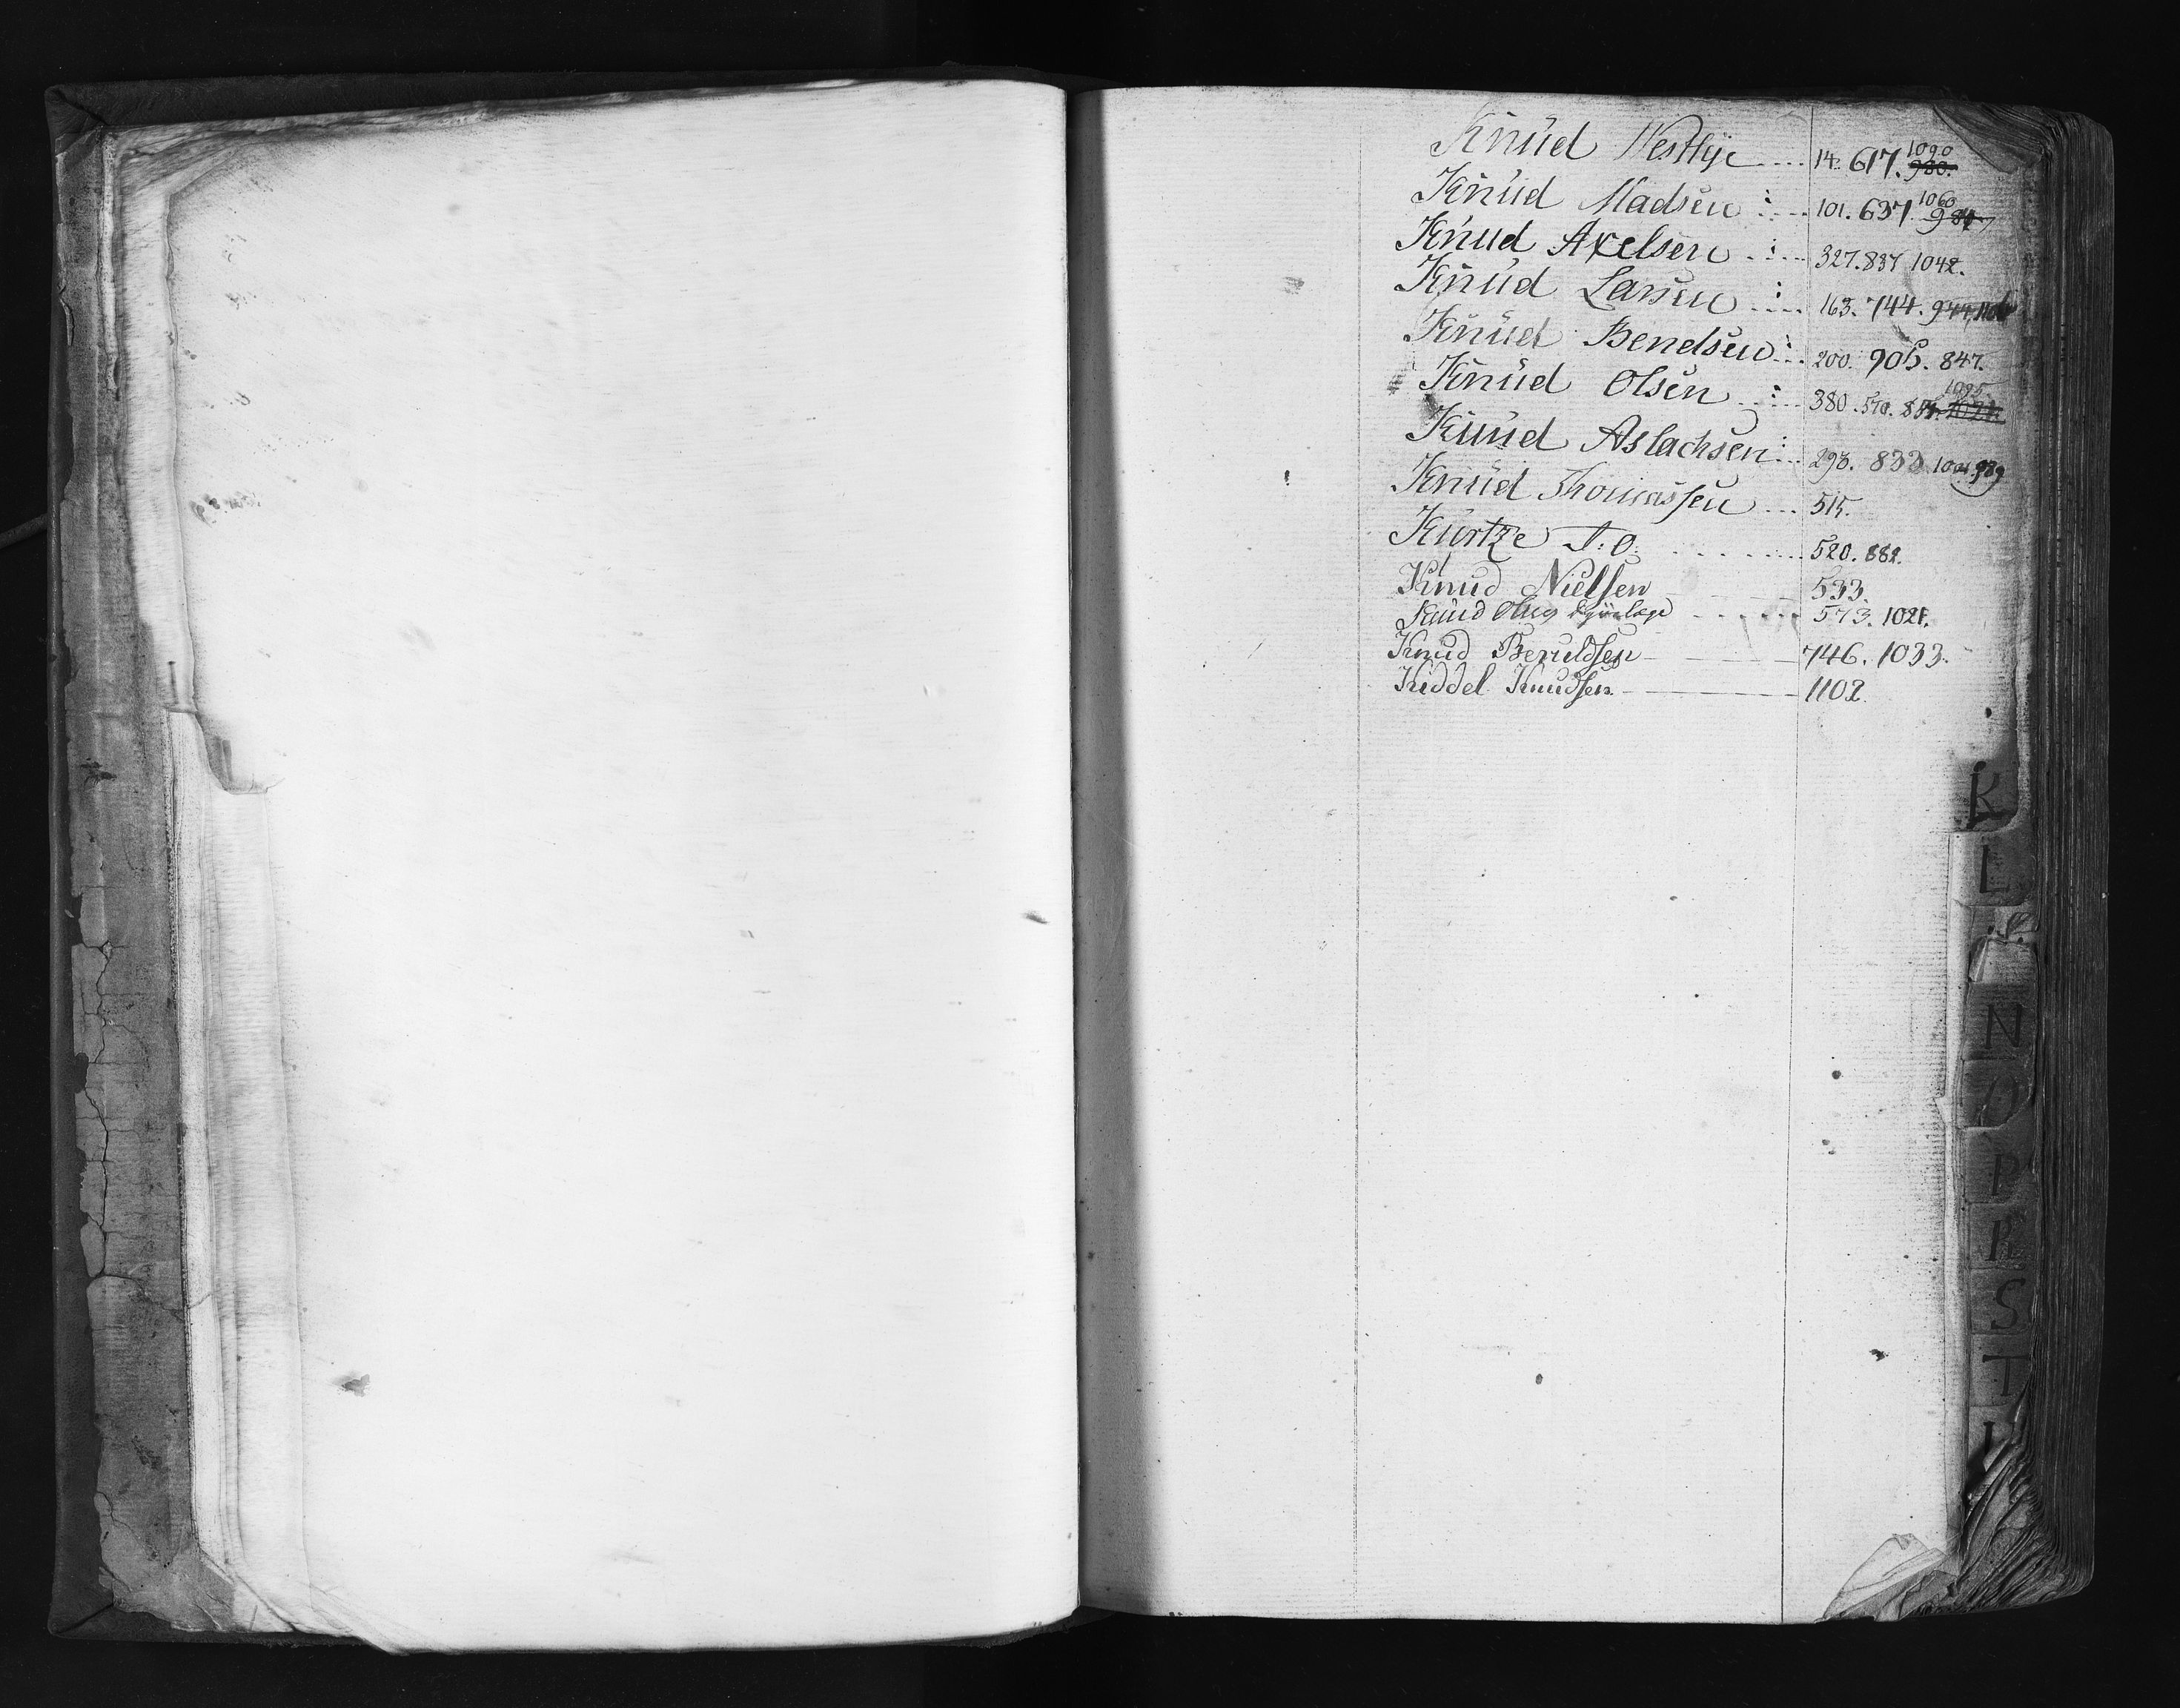 Knud Westlye .... 14. 617. 1090 980.
Knud Madsen .... 101. 637. 1060 987
Knud Axelsen .... 327. 837 1042.
Knud Larsen .... 163. 744. 944.
Knud Bendsen ... 200. 905. 847.
Knud Olsen .... 380. 570. 1095
Knud Aslachsen .. 298. 833 989
Knud Thomassen ... 515.
Kurtze J: O: ....... 520. 882.
Knud Nielsen 533.
Knud Olsen ...... 573. 1021.
Knud Beruldsen 746. 1033.
Kiddel Knudsen 1102.
K
L
N
O
P
R
S
T